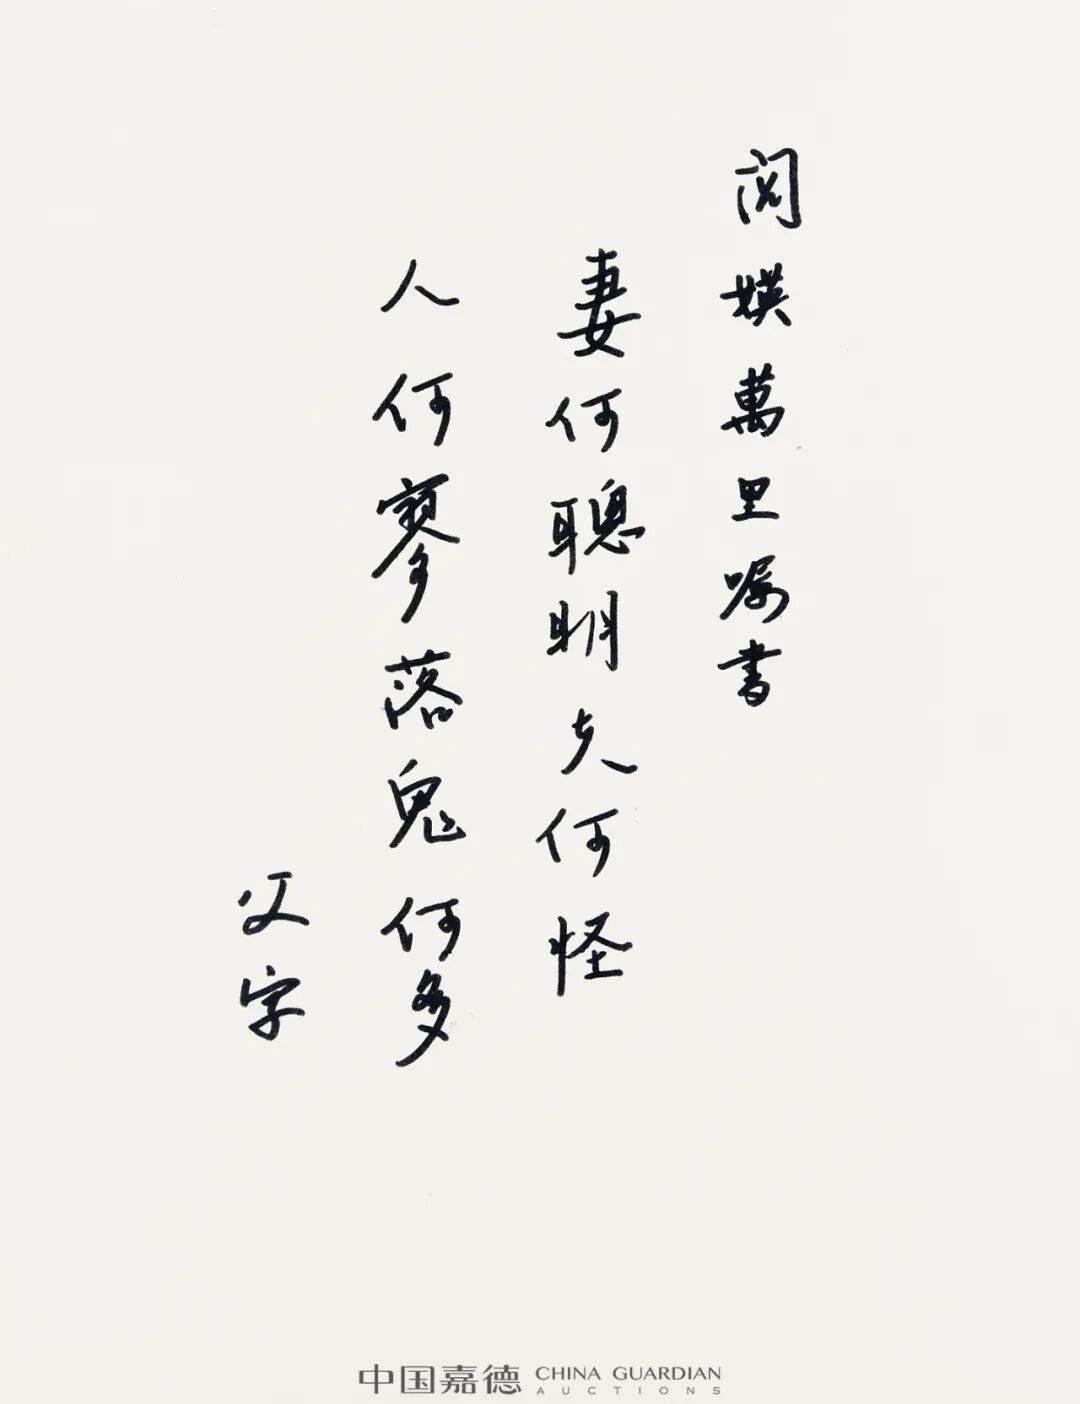 阅媖萬里嘱书
妻何聪明夫何怪
人何寥落鬼何多
父字
中国嘉德 CHINA GUARDIAN
AUCTIONS